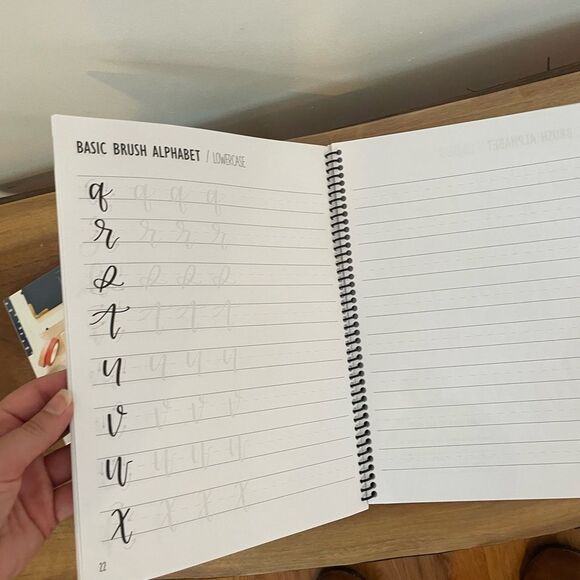 BASIC BRUSH ALPHABET / LOWERCASE
q q q q
r r r r
s s s s
t t t t
u u u u
v v v v
w w w w
x x x x
22